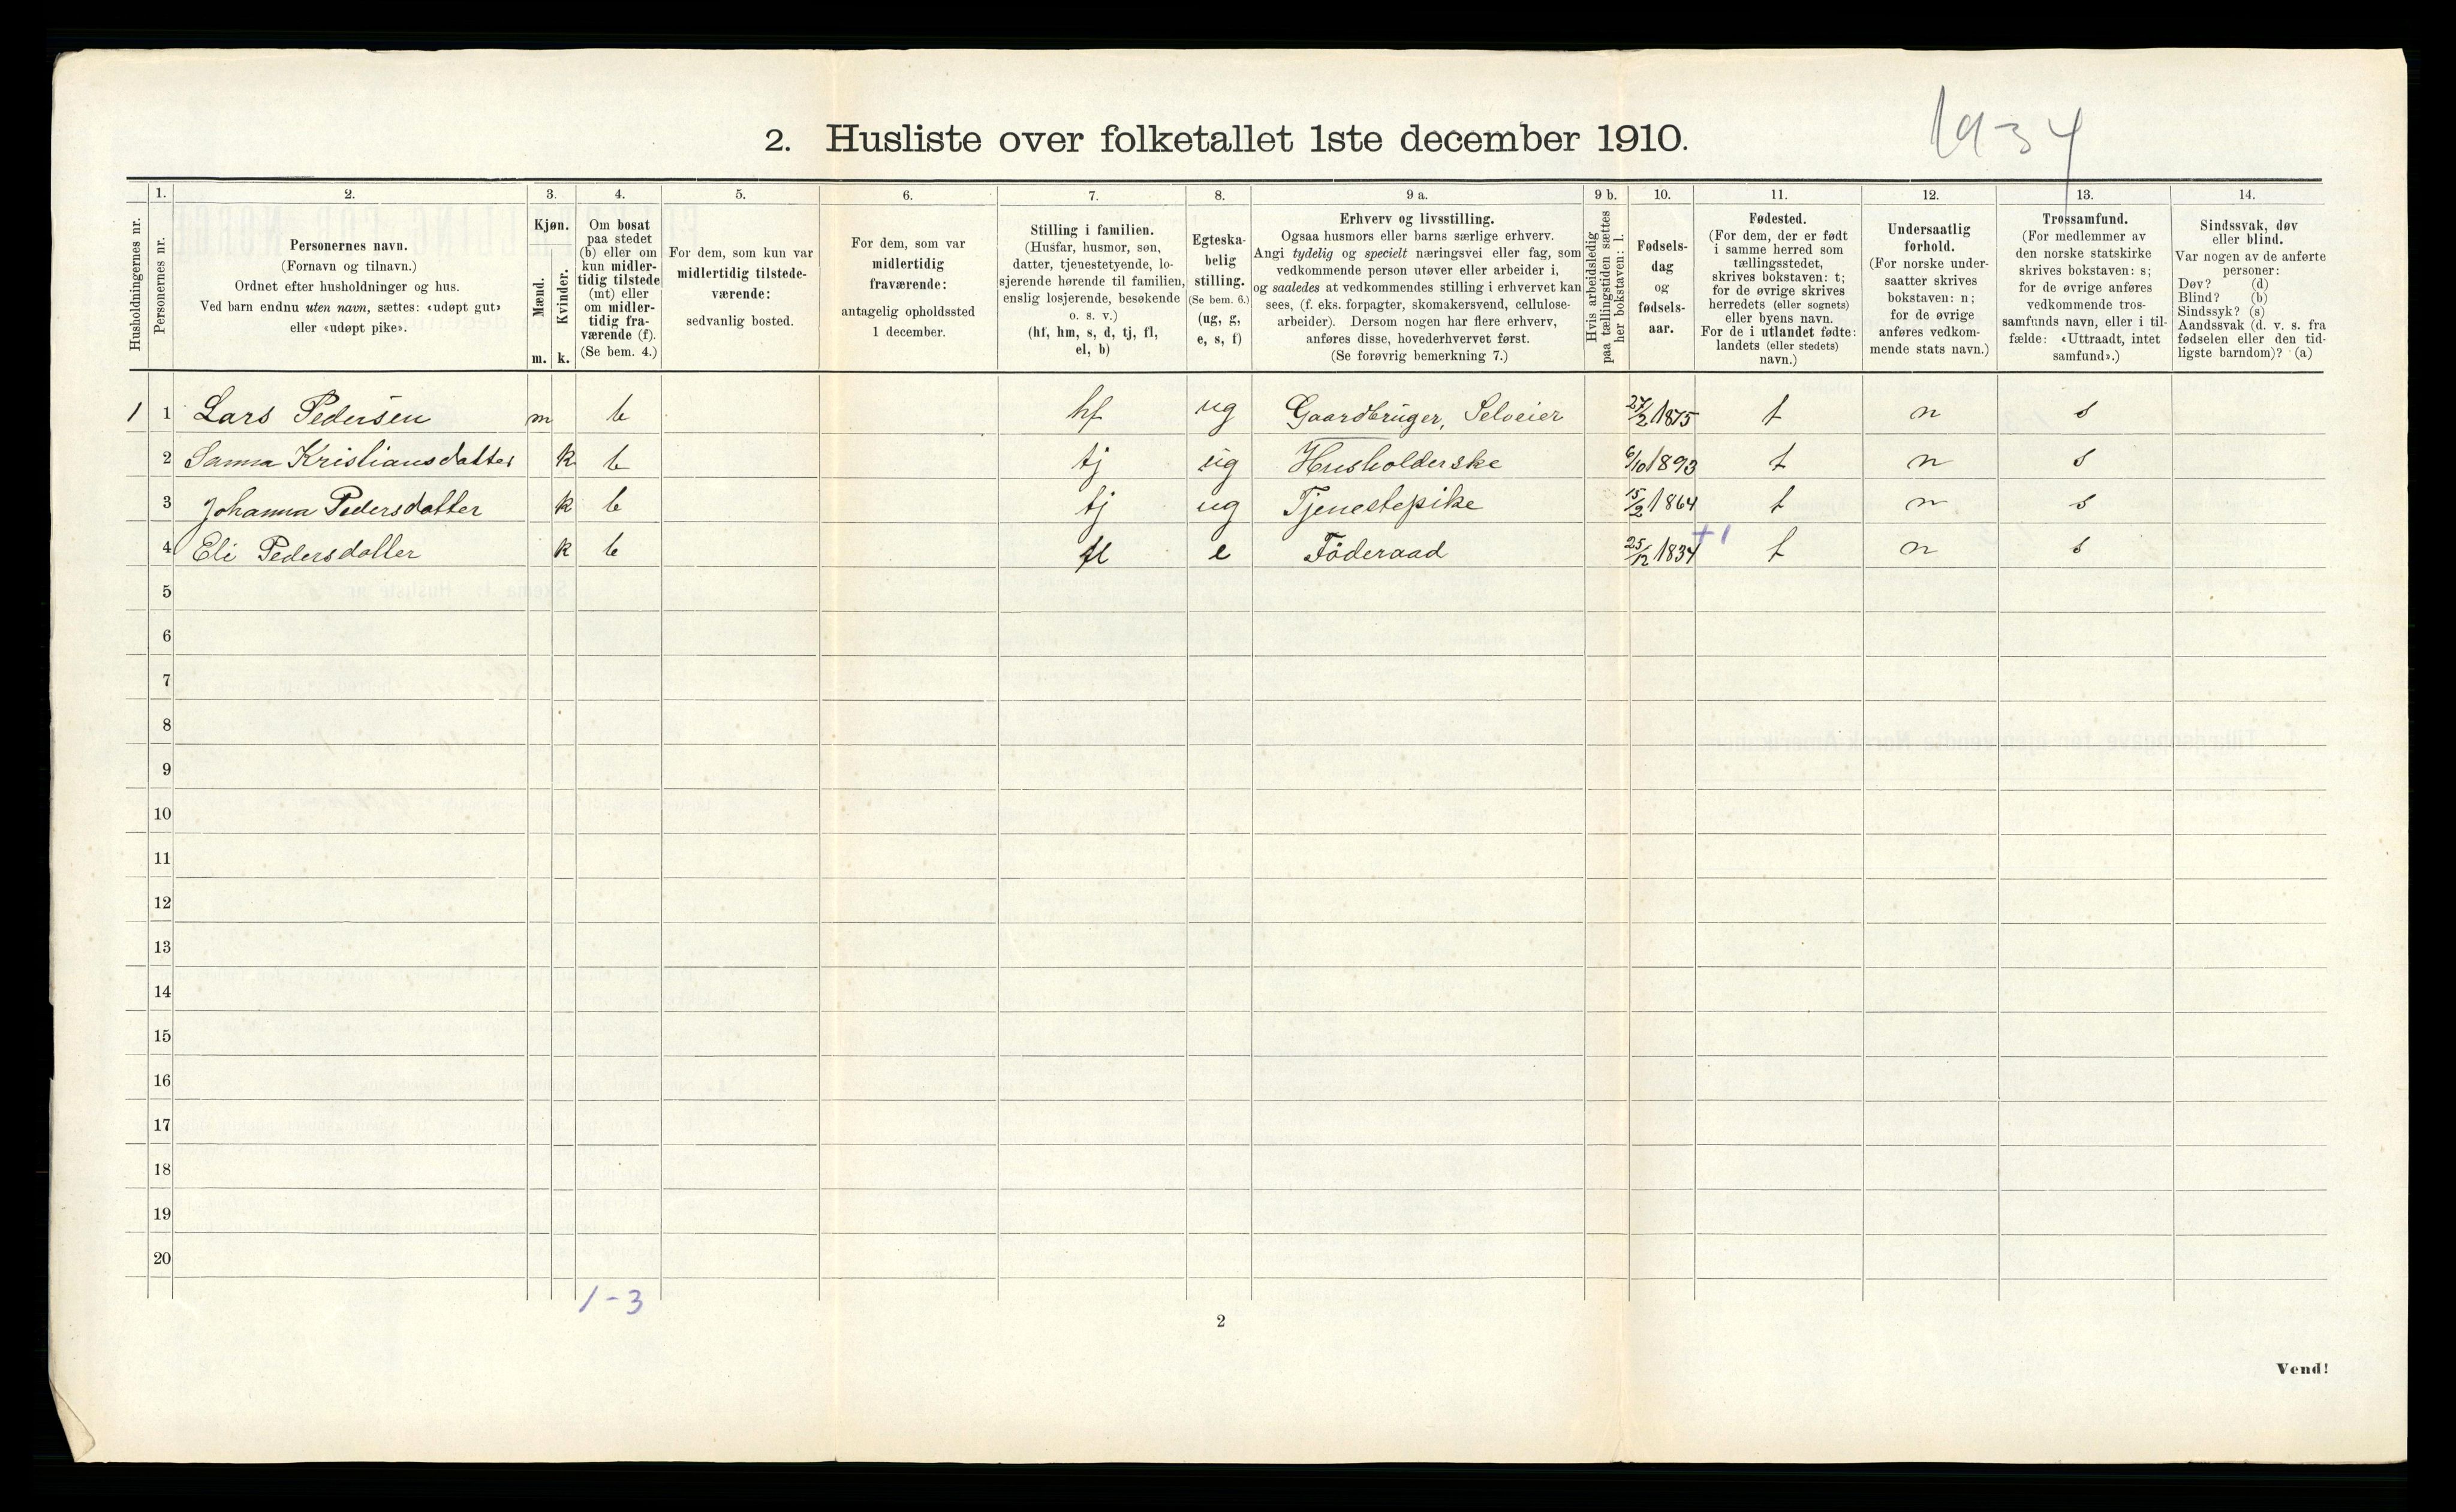 1934
2. Husliste over folketallet 1ste december 1910.
Husholdningernes nr.
1.
Personernes nr.
2.
Personernes navn.
(Fornavn og tilnavn.)
Ordnet efter husholdninger og hus.
Ved barn endnu uten navn, sættes: «udøpt gut»
eller «udøpt pike».
3.
Kjøn.
Mænd.
Kvinder.
m. k.
4.
Om bosat
paa stedet
(b) eller om
kun midler-
tidig tilstede
(mt) eller
om midler-
tidig fra-
værende (f).
(Se bem. 4.)
5.
For dem, som kun var
midlertidig tilstede-
værende:
sedvanlig bosted.
6.
For dem, som var
midlertidig
fraværende:
antagelig opholdssted
1 december.
7.
Stilling i familien.
(Husfar, husmor, søn,
datter, tjenestetyende, lo-
sjerende hørende til familien,
enslig losjerende, besøkende
o. s. v.)
(hf, hm, s, d, tj, fl,
el, b)
8.
Egteska-
belig
stilling.
(Se bem. 6.)
(ug, g,
e, s, f)
9 a.
Erhverv og livsstilling.
Ogsaa husmors eller barns særlige erhverv.
Angi tydelig og specielt næringsvei eller fag, som
vedkommende person utøver eller arbeider i,
og saaledes at vedkommendes stilling i erhvervet kan
sees, (f. eks. forpagter, skomakersvend, cellulose-
arbeider). Dersom nogen har flere erhverv,
anføres disse, hovederhvervet først.
(Se forøvrig bemerkning 7.)
9 b.
Hvis arbeidsledig
paa tællingstiden sættes
her bokstaven: l.
10.
Fødsels-
dag
og
fødsels-
aar.
11.
Fødested.
(For dem, der er født
i samme herred som
tællingsstedet,
skrives bokstaven: t;
for de øvrige skrives
herredets (eller sognets)
eller byens navn.
For de i utlandet fødte:
landets (eller stedets)
navn.)
12.
Undersaatlig
forhold.
(For norske under-
saatter skrives
bokstaven: n;
for de øvrige
anføres vedkom-
mende stats navn.)
13.
Trossamfund.
(For medlemmer av
den norske statskirke
skrives bokstaven: s;
for de øvrige anføres
vedkommende tros-
samfunds navn, eller i til-
fælde: «Uttraadt, intet
samfund».)
14.
Sindssvak, døv
eller blind.
Var nogen av de anførte
personer:
Døv? (d)
Blind? (b)
Sindssyk? (s)
Aandssvak (d. v. s. fra
fødselen eller den tid-
ligste barndom)? (a)
1 1 Lars Pedersen m b hf ug Gaardbruger, Selveier 27/2 1875 t n s
2 Sanna Kristiansdatter k b tj ug Husholderske 6/10 1893 t n s
3 Johanna Pedersdatter k b tj ug Tjenestepike 15/2 1864 t n s
4 Eli Pedersdatter k b fl e Föderaad 25/12 1834 +1 t n s
5
6
7
8
9
10
11
12
13
14
15
16
17
18
19
20
1-3
2
Vend!